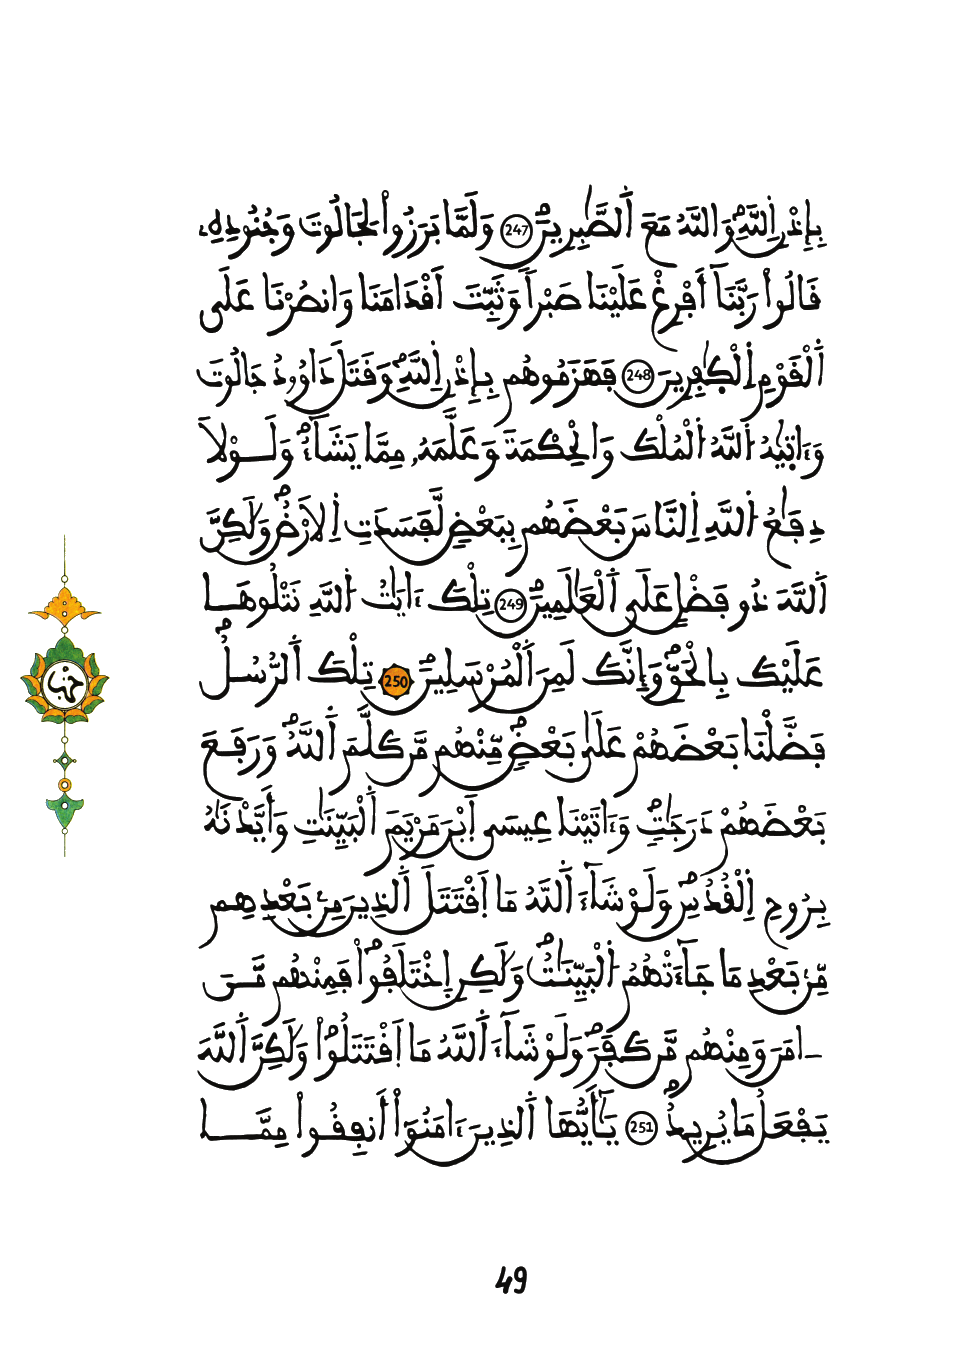 بِإِذْنِ اِ۬للَّهِۖ وَاللَّهُ مَعَ اَ۬لصَّٰبِرِينَۖ 247 وَلَمَّا بَرَزُواْ لِجَالُوتَ وَجُنُودِهِۦ
قَالُواْ رَبَّنَآ أَفْرِغْ عَلَيْنَا صَبْراٗ وَثَبِّتَ اَقْدَامَنَا وَانصُرْنَا عَلَى
اَ۬لْقَوْمِ اِ۬لْكٰ۪فِرِينَ 248 فَهَزَمُوهُم بِإِذْنِ اِ۬للَّهِۖ وَقَتَلَ دَاوُۥدُ جَالُوتَ
وَءَات۪يٰهُ اُ۬للَّهُ اُ۬لْمُلْكَ وَالْحِكْمَةَ وَعَلَّمَهُۥ مِمَّا يَشَآءُۖ وَلَوْلَا
دِفَٰعُ اُ۬للَّهِ اِ۬لنَّاسَ بَعْضَهُم بِبَعْضٖ لَّفَسَدَتِ اِ۬لَارْضُۖ وَلَٰكِنَّ
اَ۬للَّهَ ذُو فَضْلٍ عَلَى اَ۬لْعَٰلَمِينَۖ 249 تِلْكَ ءَايَٰتُ اُ۬للَّهِ نَتْلُوهَا
عَلَيْكَ بِالْحَقِّۖ وَإِنَّكَ لَمِنَ اَ۬لْمُرْسَلِينَۖ 250 تِلْكَ اَ۬لرُّسُلُۖ
فَضَّلْنَا بَعْضَهُمْ عَلَىٰ بَعْضٖۖ مِّنْهُم مَّن كَلَّمَ اَ۬للَّهُۖ وَرَفَعَ
بَعْضَهُمْ دَرَجَٰتٖۖ وَءَاتَيْنَا عِيسَى اَ۪بْنَ مَرْيَمَ اَ۬لْبَيِّنَٰتِ وَأَيَّدْنَٰهُ
بِرُوحِ اِ۬لْقُدُسِۖ وَلَوْ شَآءَ اَ۬للَّهُ مَا اَ۪قْتَتَلَ اَ۬لذِينَ مِنۢ بَعْدِهِم
مِّنۢ بَعْدِ مَا جَآءَتْهُمُ اُ۬لْبَيِّنَٰتُۖ وَلَٰكِنِ اِ۪خْتَلَفُواْۖ فَمِنْهُم مَّنَ
ـ امَنَ وَمِنْهُم مَّن كَفَرَۖ وَلَوْ شَآءَ اَ۬للَّهُ مَا اَ۪قْتَتَلُواْۖ وَلَٰكِنَّ اَ۬للَّهَ
يَفْعَلُ مَا يُرِيدُۖ 251 يَٰٓأَيُّهَا اَ۬لذِينَ ءَامَنُوٓاْ أَنفِقُواْ مِمَّا
حزب
49